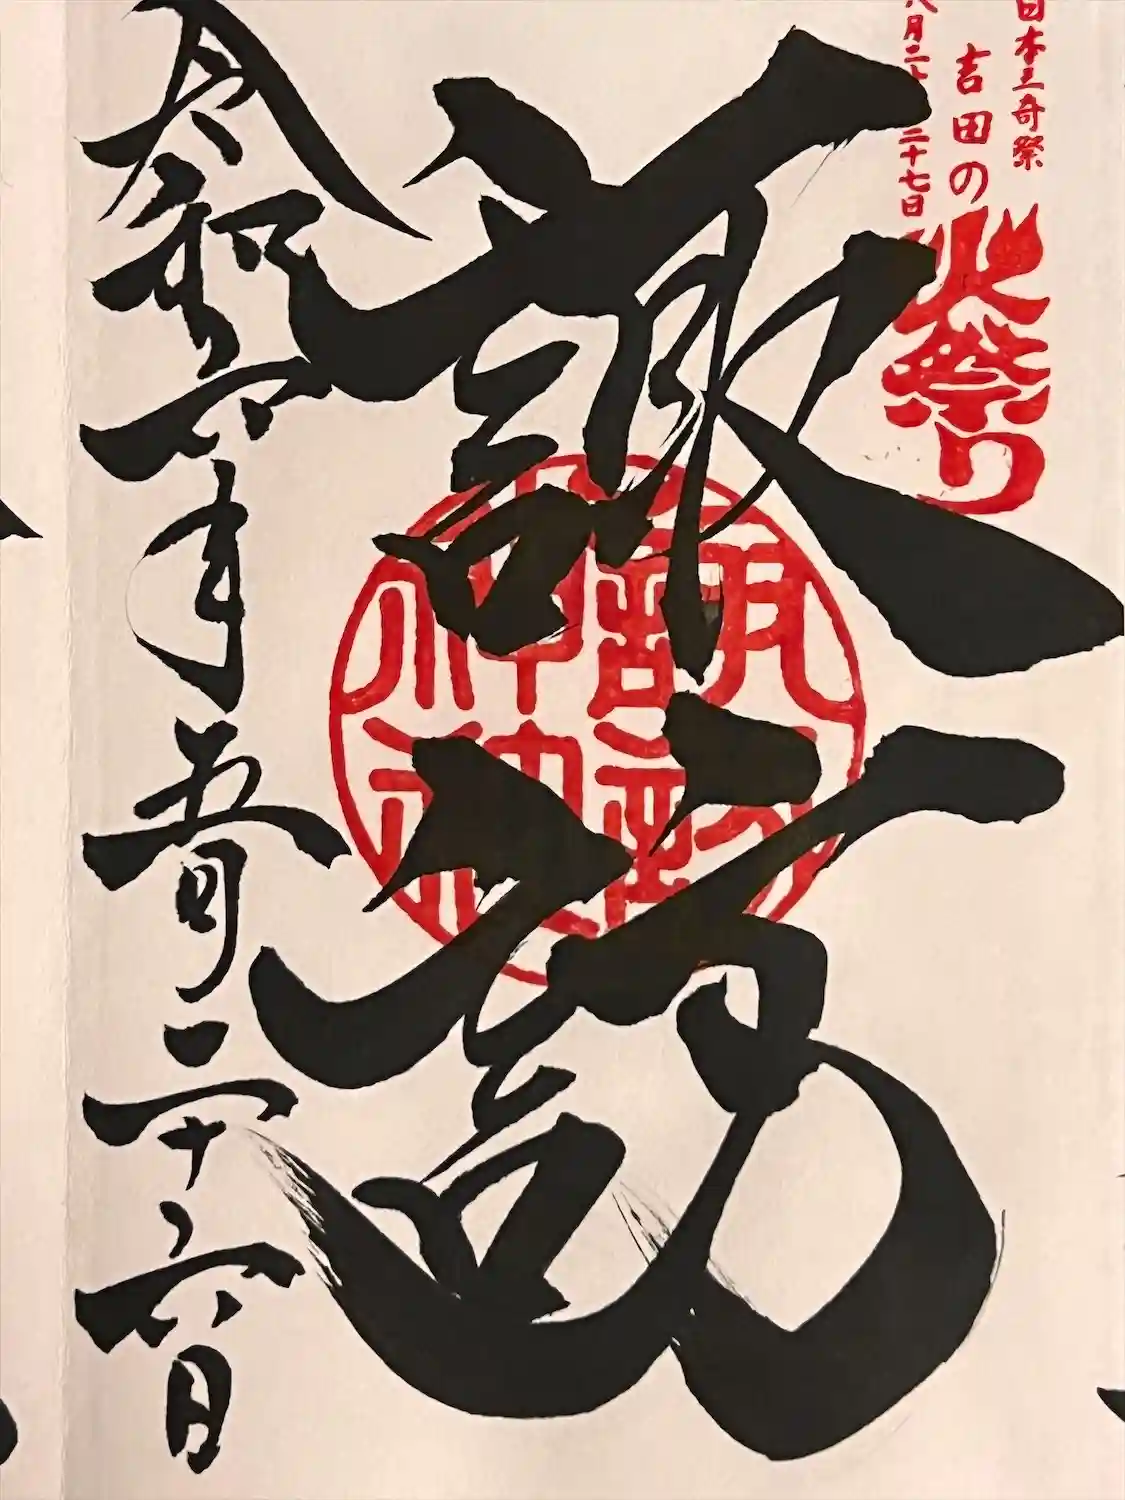 日本三奇祭
吉田の火祭り
八月二十 二十七日
諏訪
諏訪
神
令和六年五月二十六日